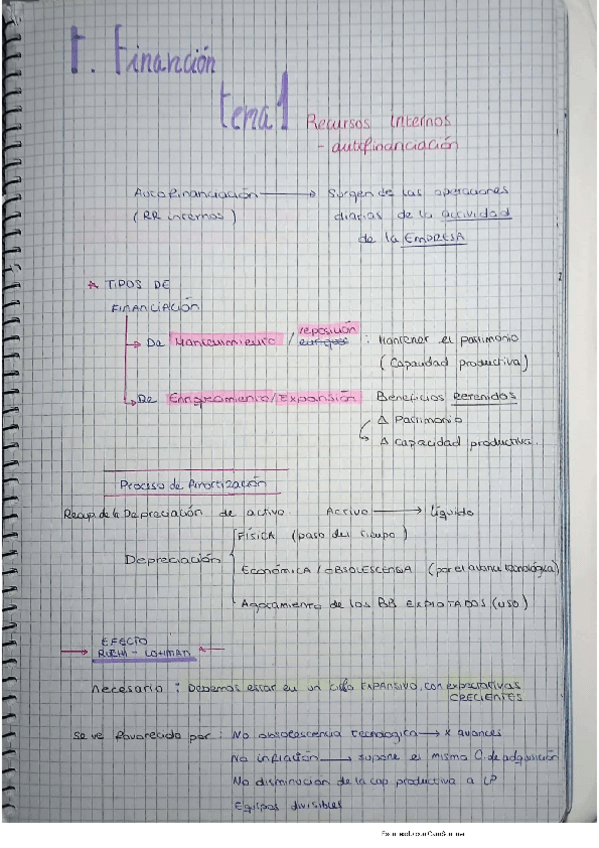 F. Financión
tema 1
Recursos Internos
- autofinanciación
Autofinanciación → Surgen de las operaciones
(RR internos) diarias de la actividad
de la EMPRESA
* TIPOS DE
FINANCIACIÓN
→ De Mantenimiento / reposición : Mantener el patrimonio
(Capacidad productiva)
→ De Enriquecimiento/Expansión Beneficios Retenidos
Δ Patrimonio
Δ Capacidad productiva.
Proceso de Amortización
Recup de la Depreciación de activo. Activo → líquido
FÍSICA (paso del tiempo)
Depreciación
Económica / OBSOLESCENCIA (por el avance tecnológico)
Agotamiento de los BB EXPLOTADOS (uso)
EFECTO
→ RUCHI - LOHMAN ←
necesario : Debemos estar en un ciclo EXPANSIVO, con expectativas
CRECIENTES
Se ve favorecido por : No obsolescencia tecnológica → x avances
No inflación → supone el mismo C. de adquisición
No disminución de la cap productiva a LP
Equipos divisibles